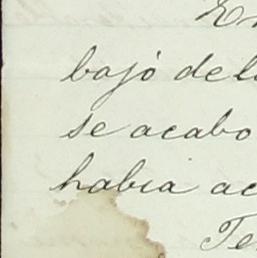 En
bajó del
se acabo
habia ac
Te